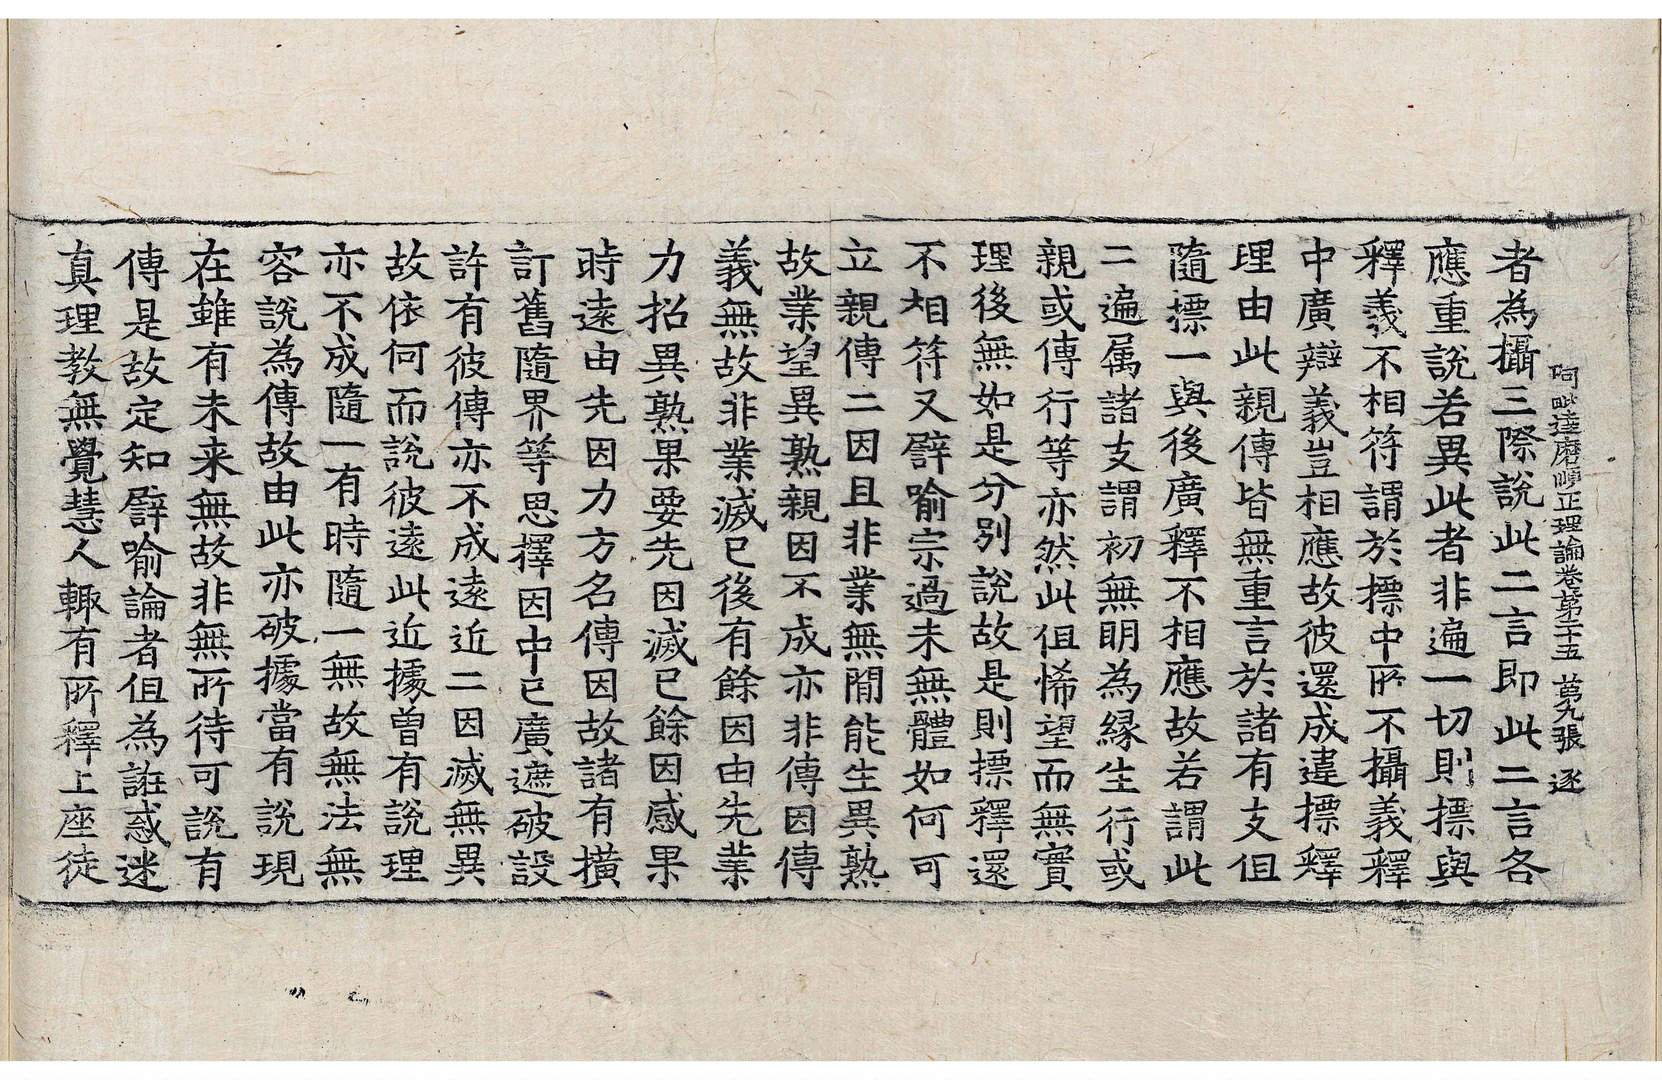 阿毗達磨順正理論卷第二十五　第九張　逐
者為攝三際說此二言即此二言各
應重說若異此者非遍一切則摽與
釋義不相符謂於摽中所不攝義釋
中廣辯義豈相應故彼還成違摽釋
理由此親傳皆無重言於諸有支但
隨摽一與後廣釋不相應故若謂此
二遍属諸支謂初無明為緣生行或
親或傳行等亦然此但悕望而無實
理後無如是分別說故是則摽釋還
不相符又譬喻宗過未無體如何可
立親傳二因且非業無間能生異熟
故業望異熟親因不成亦非傳因傳
義無故非業滅已後有餘因由先業
力招異熟果要先因滅已餘因感果
時遠由先因力方名傳因故諸有撗
訂舊隨界等思擇因中已廣遮破設
許有彼傳亦不成遠近二因滅無異
故依何而說彼遠此近據曾有說理
亦不成隨一有時隨一無故無法無
容說為傳故由此亦破據當有說現
在雖有未来無故非無所待可說有
傳是故定知譬喻論者但為誑惑迷
真理教無覺慧人輙有所釋上座徒